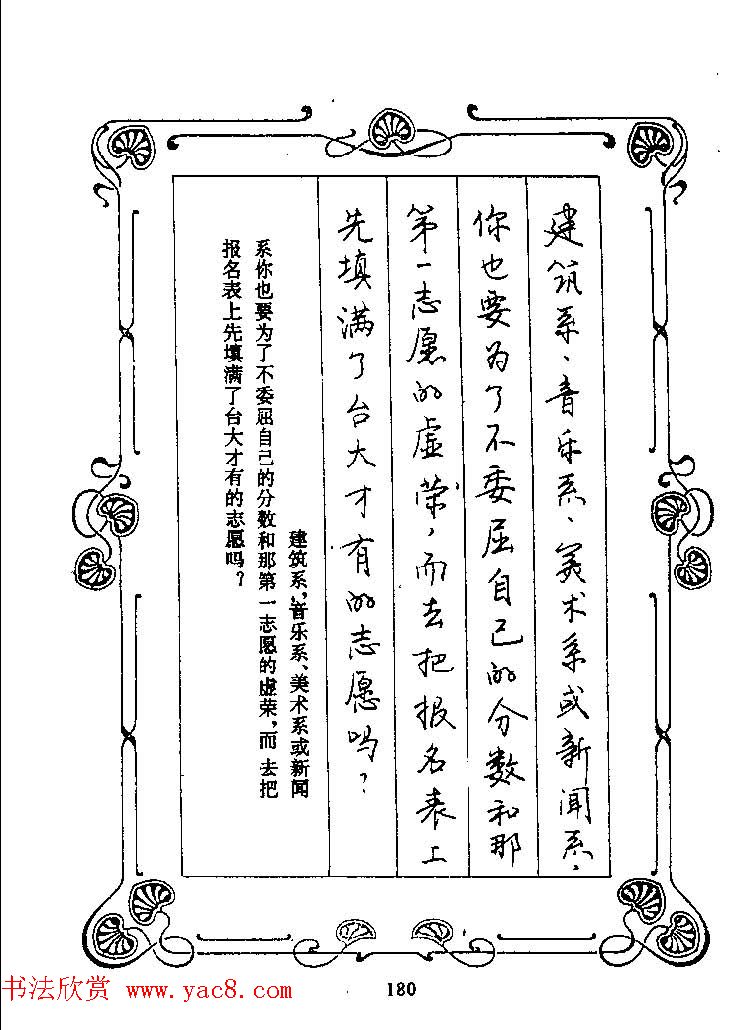 建筑系、音乐系、美术系或新闻系，
你也要为了不委屈自己的分数和那
第一志愿的虚荣，而去把报名表上
先填满了台大才有的志愿吗？
建筑系，音乐系、美术系或新闻
系你也要为了不委屈自己的分数和那第一志愿的虚荣，而去把
报名表上先填满了台大才有的志愿吗？
180
书法欣赏 www.yac8.com